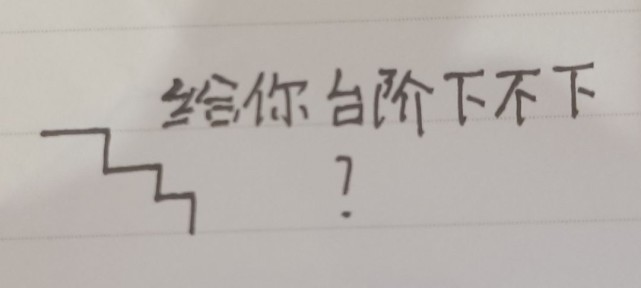 给你台阶下不下
?